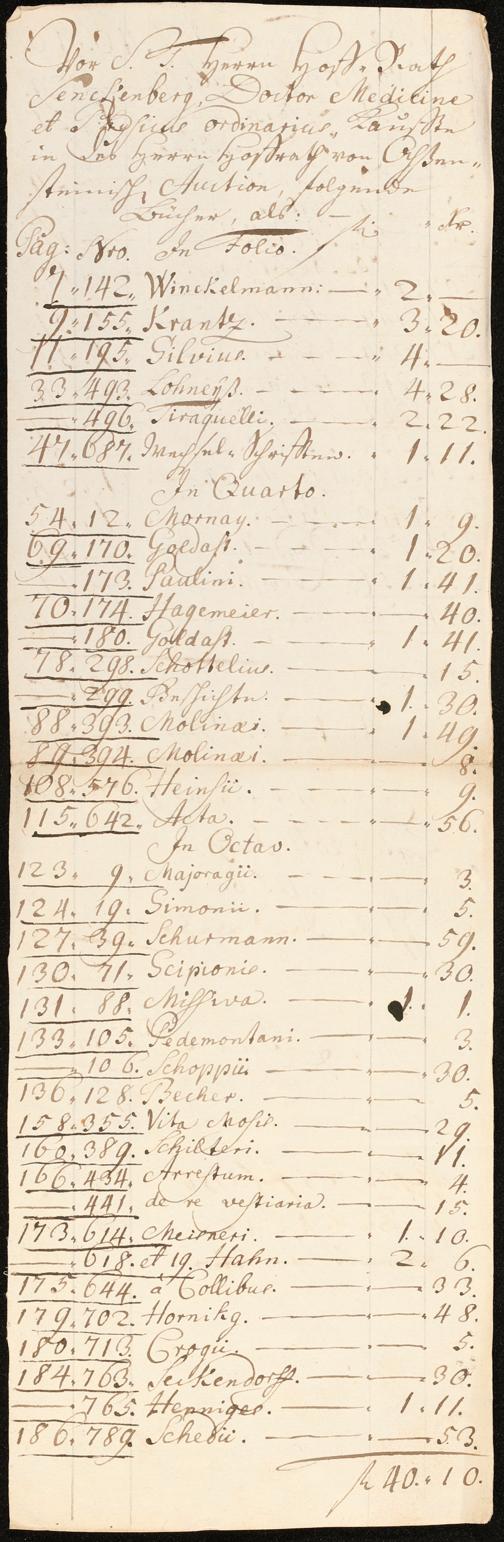 Vor S. T. Herrn Hoff-Rath
Senckenberg, Doctor Medicine
et Physicus ordinarius, Kauffte
in des Herrn Hoffrath von Ochsen-
steinisch Auction, folgende
Bücher, als: — f. " Xr.
Pag: Nro. In Folio.
7. 142. Winckelmann: — " 2. —
9. 155. Krantz. — " 3. 20.
11. 195. Silvius. — " 4. —
33. 493. Lohneyß. — " 4. 28.
— 496. Tiraquelli. — " 2. 22.
47. 687. Wechsel-Schrifften. " 1. 11.
In Quarto.
54. 12. Mornay. — 1. 9.
69. 170. Goldast. — 1. 20.
— 173. Paulini. — " 1. 41.
70. 174. Hagemeier. — 40.
— 180. Goldast. — " 1. 41.
78. 298. Schottelius. — 15.
— 299. Beshichte. — 1. 30.
88. 393. Molinæi. — " 1. 49.
89. 394. Molinæi. — 8.
108. 576. Heinsii. — " — 9.
115. 642. Acta. — " — 56.
In Octav.
123. 9. Majoragii. — " — 3.
124. 19. Simonii. — " — 5.
127. 39. Schurmann. — " — 59.
130. 71. Scipionis. — " — 30.
131. 88. Missiva. — 1. 1.
133. 105. Pedemontani. — " — 3.
— 106. Schoppii — " — 30.
136. 128. Becher. — " — 5.
158. 355. Vita Mosis. — " — 29.
160. 389. Schilteri. — " — 11.
166. 434. Arrestum. — " — 4.
— 441. de re vestiaria. — " — 15.
173. 614. Meisneri. — 1. 10.
— 618. et 19. Hahn. — 2. 6.
175. 644. à Collibus. — " — 33.
179. 702. Hornikg. — " — 48.
180. 713. Croqui. — " — 5.
184. 763. Seckendorff. — " — 30.
— 765. Henniges. — 1. 11.
186. 789. Schebii. — " — 53.
f 40. 10.